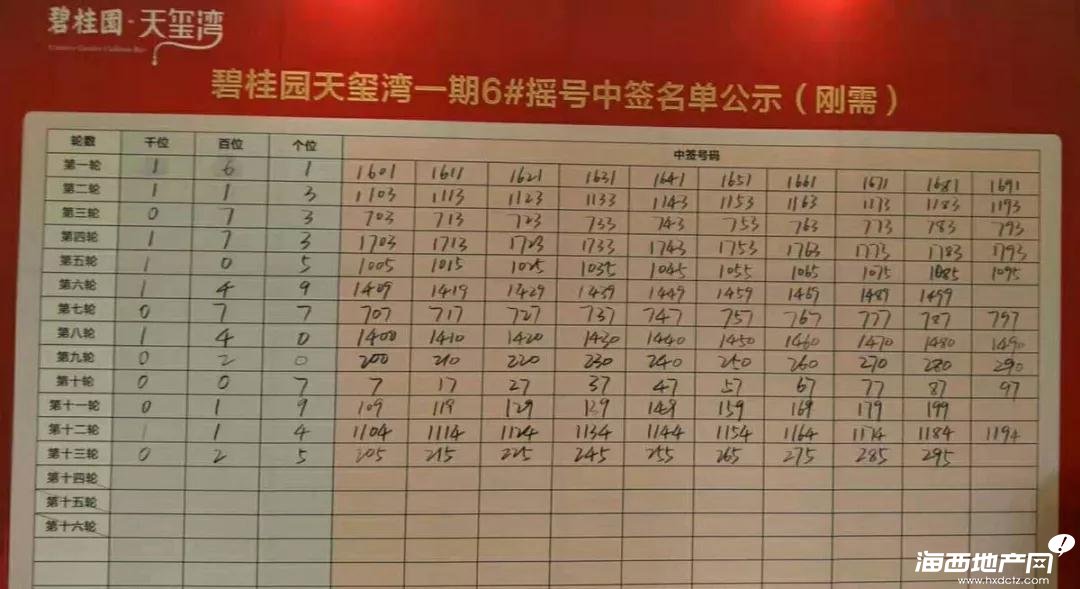 碧桂园·天玺湾
碧桂园天玺湾一期6#摇号中签名单公示（刚需）
轮数 千位 百位 个位 中签号码
第一轮 1 6 1 1601 1611 1621 1631 1641 1651 1661 1671 1681 1691
第二轮 1 1 3 1103 1113 1123 1133 1143 1153 1163 1173 1183 1193
第三轮 0 7 3 703 713 723 733 743 753 763 773 783 793
第四轮 1 7 3 1703 1713 1723 1733 1743 1753 1763 1773 1783 1793
第五轮 1 0 5 1005 1015 1025 1035 1045 1055 1065 1075 1085 1095
第六轮 1 4 9 1409 1419 1429 1439 1449 1459 1469 1489 1499
第七轮 0 7 7 707 717 727 737 747 757 767 777 787 797
第八轮 1 4 0 1400 1410 1420 1430 1440 1450 1460 1470 1480 1490
第九轮 0 2 0 200 210 220 230 240 250 260 270 280 290
第十轮 0 0 7 7 17 27 37 47 57 67 77 87 97
第十一轮 0 1 9 109 119 129 139 149 159 169 179 199
第十二轮 1 1 4 1104 1114 1124 1134 1144 1154 1164 1174 1184 1194
第十三轮 0 2 5 205 215 225 245 255 265 275 285 295
第十四轮
第十五轮
第十六轮
海西地产网!
www.hxdctz.com